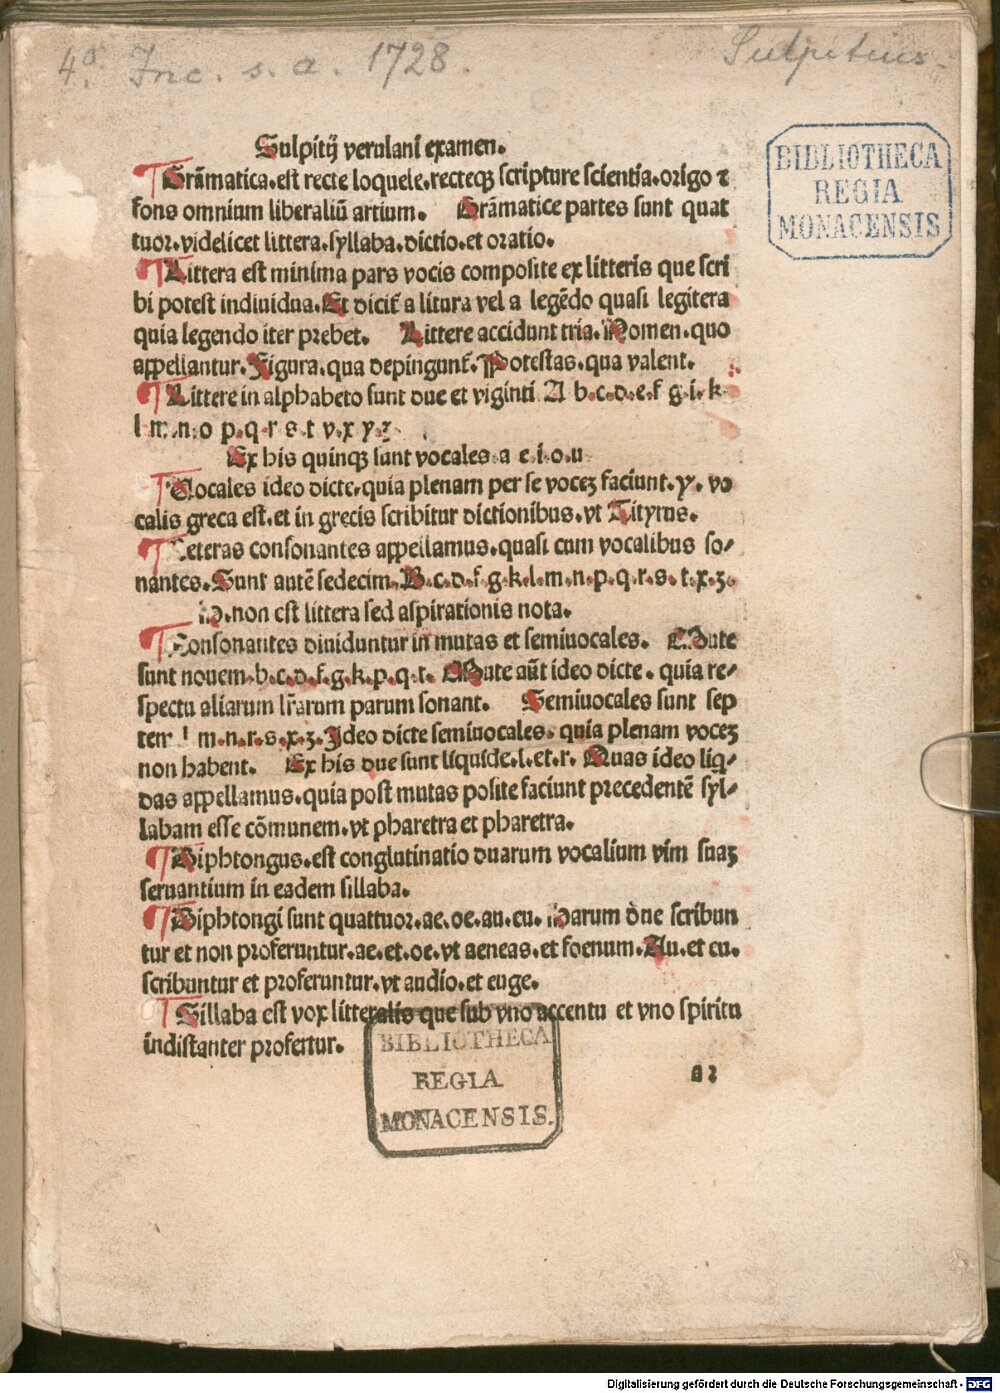 4º. Inc. s. a. 1728.
Sulpitius.
BIBLIOTHECA
REGIA
MONACENSIS
Sulpitij verulani examen.
Grãmatica.est recte loquele.recteqꝫ scripture scientia.origo ⁊
fons omnium liberaliũ artium. Grãmatice partes sunt quat
tuor.videlicet littera.syllaba.dictio.et oratio.
Littera est minima pars vocis composite ex litteris que scri
bi potest indiuidua.Et dicit̃ a litura vel a legẽdo quasi legitera
quia legendo iter prebet. Littere accidunt tria.Nomen.quo
appellantur.Figura.qua depingunt̃.Potestas.qua valent.
Littere in alphabeto sunt due et viginti A b.c.d.e.f g.i.k
l m.n.o p.q.r s.t v.x y.z
Ex his quinqꝫ sunt vocales.a e.i.o.u
Vocales ideo dicte.quia plenam per se voceꝫ faciunt.y.vo
calis greca est.et in grecis scribitur dictionibus.vt Tityrus.
Ceteras consonantes appellamus.quasi cum vocalibus so/
nantes.Sunt autẽ sedecim.B.c.d.f.g.k.l.m.n.p.q.r.s.t.x.z.
H.non est littera sed aspirationis nota.
Consonantes diuiduntur in mutas et semiuocales. Mute
sunt nouem.b.c.d.f.g.k.p.q.t. Mute aũt ideo dicte.quia re/
spectu aliarum lr̃arum parum sonant. Semiuocales sunt sep
tem l m.n.r.s.x.z.Ideo dicte semiuocales.quia plenam voceꝫ
non habent. Ex his due sunt liquide.l.et.r. Quas ideo liq/
das appellamus.quia post mutas posite faciunt precedentẽ syl/
labam esse cõmunem.vt pharetra et pharetra.
Diphtongus.est conglutinatio duarum vocalium vim suaꝫ
seruantium in eadem sillaba.
Diphtongi sunt quattuor.ae.oe.au.eu. Harum due scribun
tur et non proferuntur.ae.et.oe.vt aeneas.et foenum.Au.et eu.
scribuntur et proferuntur.vt audio.et euge.
Sillaba est vox litteralis que sub vno accentu et vno spiritu
indistanter profertur.
a2
BIBLIOTHECA
REGIA
MONACENSIS.
Digitalisierung gefördert durch die Deutsche Forschungsgemeinschaft - DFG